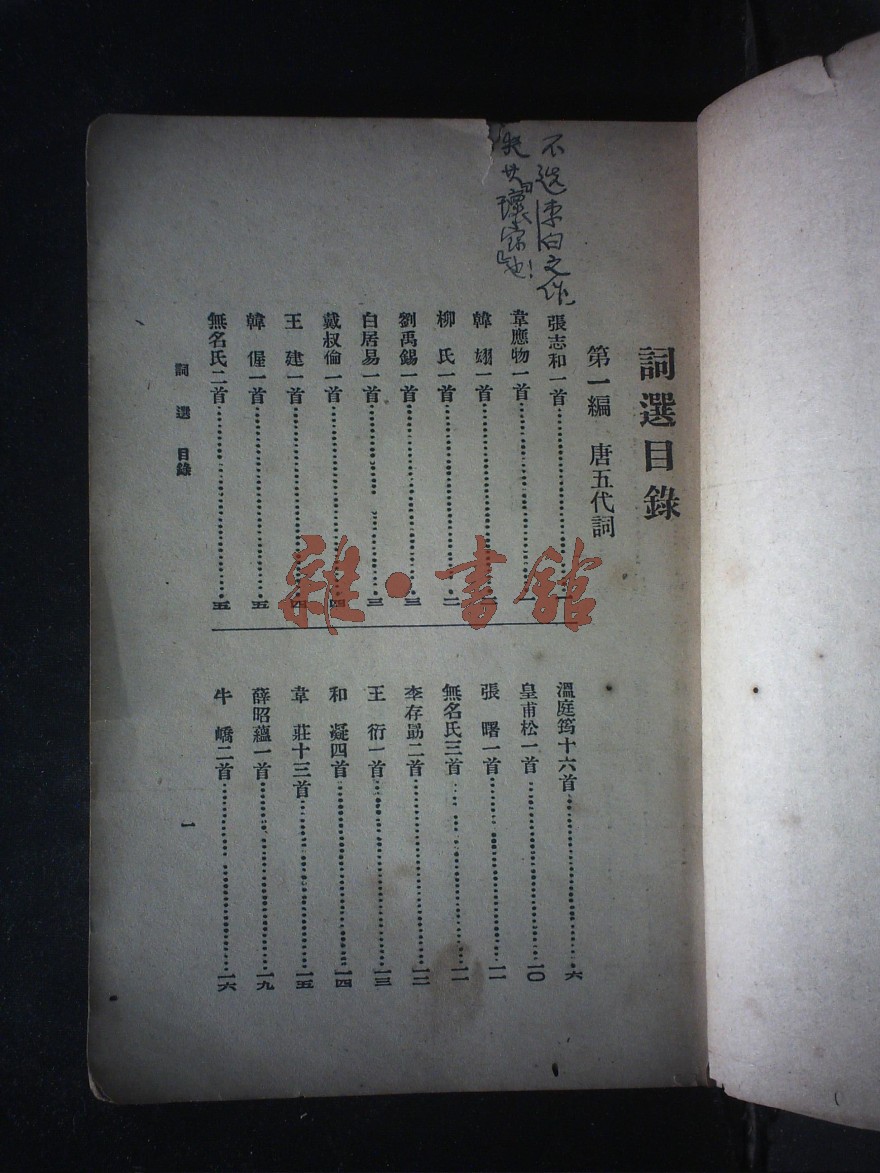 詞選目錄
第一編 唐五代詞
張志和一首
韋應物一首
韓翃一首
柳氏一首 二
劉禹錫一首 三
白居易一首 三
戴叔倫一首 四
王建一首 四
韓偓一首 五
無名氏二首 五
溫庭筠十六首 六
皇甫松一首 一〇
張曙一首 一一
無名氏三首 一一
李存勗二首 一二
王衍一首 一三
和凝四首 一四
韋莊十三首 一五
薛昭蘊一首 一九
牛嶠二首 一六
詞選 目錄
一
不选李白之作
雜·書館